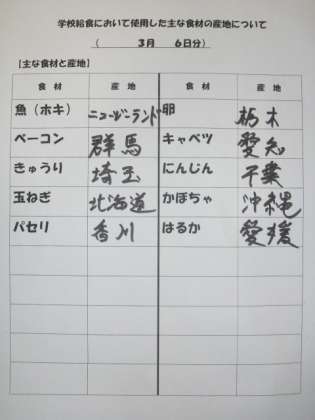 学校給食において使用した主な食材の産地について
（　3月　6日分）
【主な食材と産地】
食材　産地　食材　産地
魚（ホキ）　ニュージーランド　卵　栃木
ベーコン　群馬　キャベツ　愛知
きゅうり　埼玉　にんじん　千葉
玉ねぎ　北海道　かぼちゃ　沖縄
パセリ　香川　はるか　愛媛